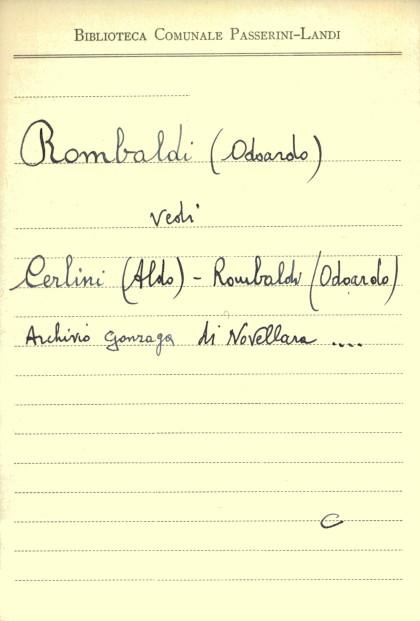 BIBLIOTECA COMUNALE PASSERINI-LANDI
Rombaldi (Odoardo)
vedi
Cerlini (Aldo) - Rombaldi (Odoardo)
Archivio Gonzaga di Novellara ....
C